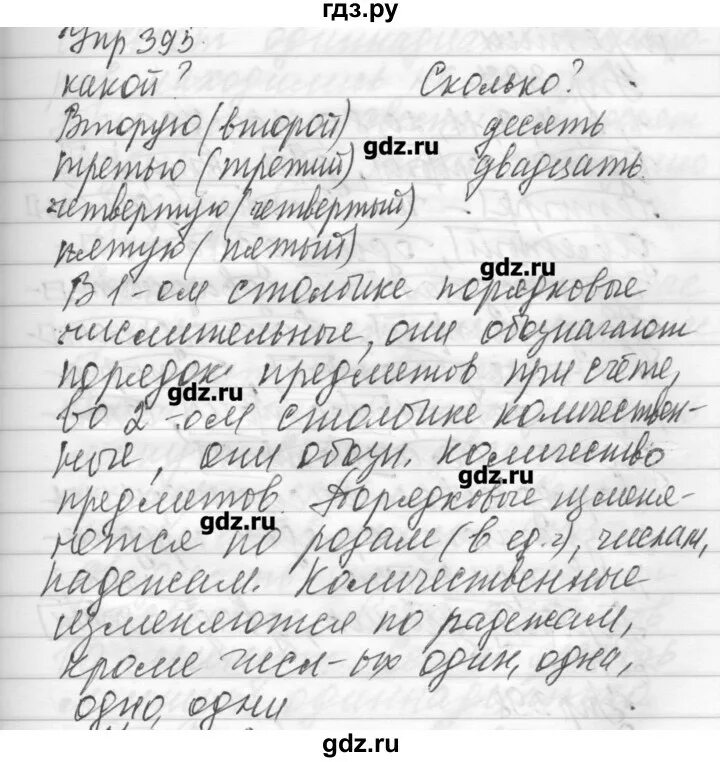 гдз.ру
Упр 395.
какой? Сколько?
Вторую (второй) десять
третью (третий) двадцать
четвертую (четвертый)
пятую (пятый)
В 1-ом столбике порядковые
числительные, они обозначают
порядок предметов при счёте,
во 2-ом столбике количествен-
ные, они обозн. количество
предметов. Порядковые изменя-
ются по родам (в ед.ч), числам,
падежам. Количественные
изменяются по падежам,
кроме числ-ых один, одна,
одно, одни
gdz.ru
gdz.ru
gdz.ru
gdz.ru
gdz.ru
gdz.ru